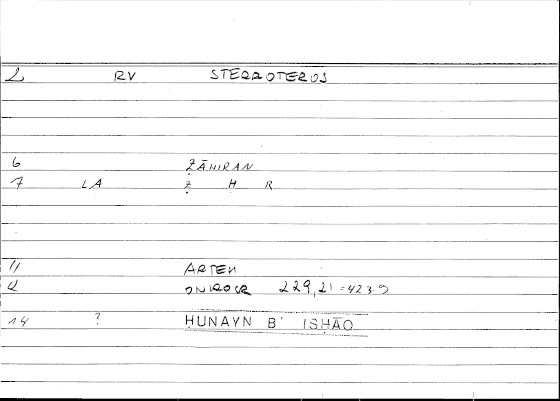 2 RV STERROTEROS
6 ẒĀHIRAN
7 LA Ẓ H R
11 ARTEM
12 ONIROCR 229,21 = 423.9
14 ? ḤUNAYN B ISḤĀQ